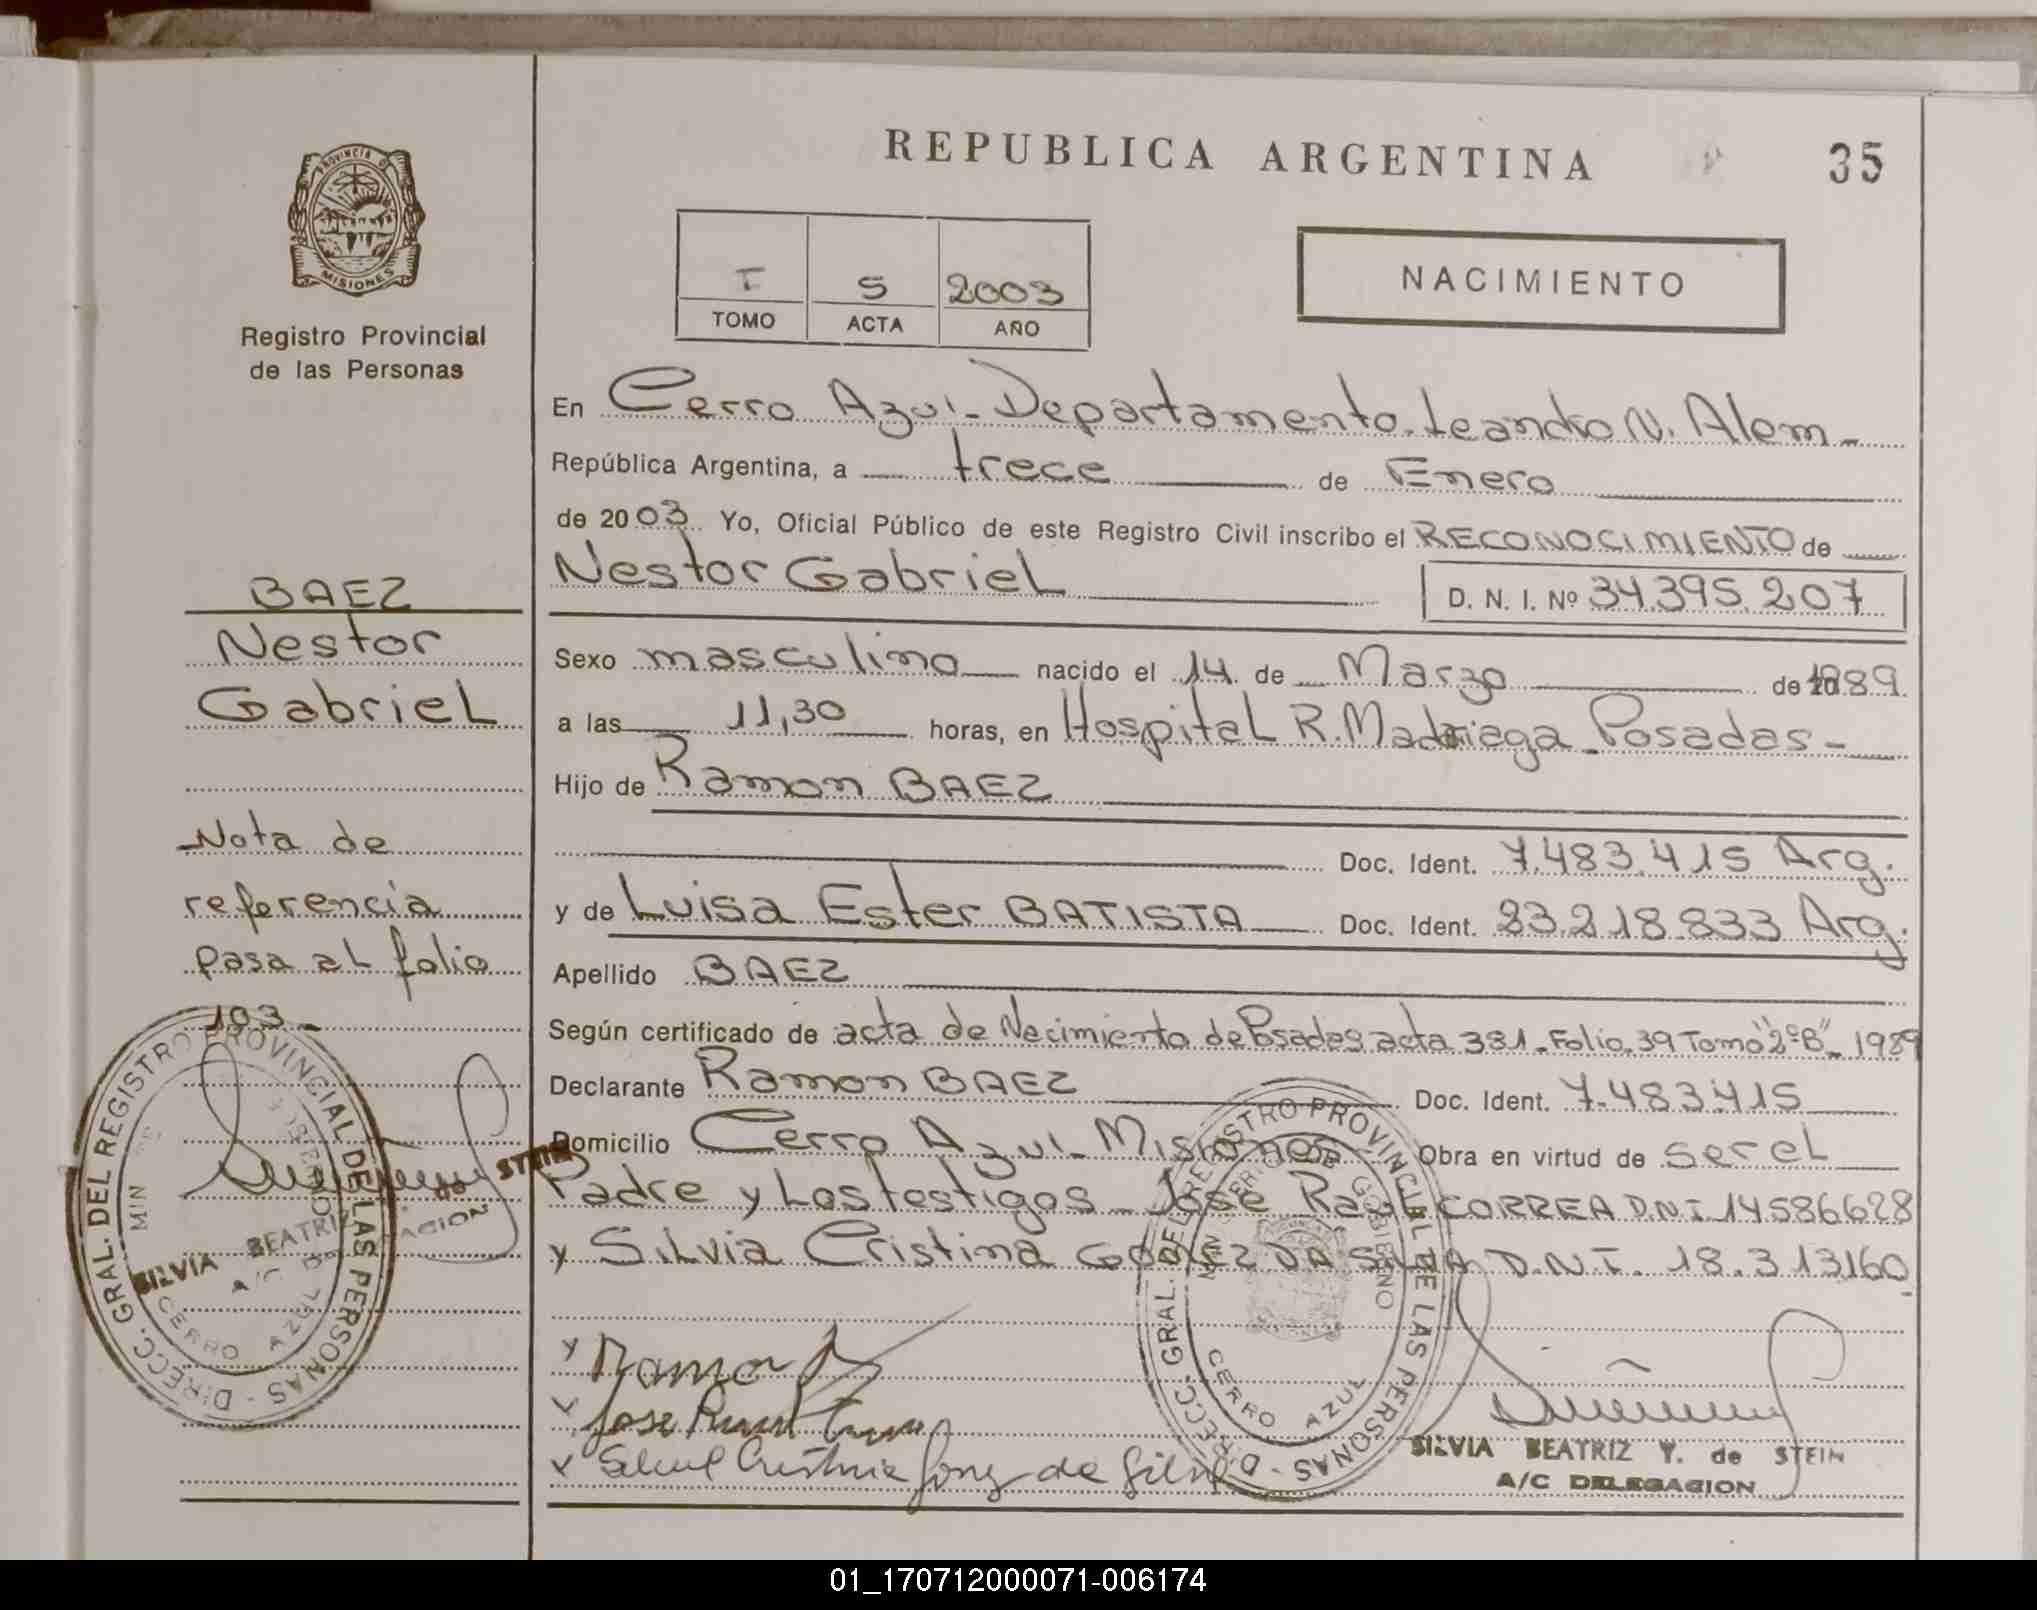 REPUBLICA ARGENTINA
35
PROVINCIA DE
MISIONES
Registro Provincial
de las Personas
I S 2003
TOMO ACTA AÑO
NACIMIENTO
En Cerro Azul - Departamento Leandro N. Alem -
República Argentina, a trece de Enero
de 2003 Yo, Oficial Público de este Registro Civil inscribo el RECONOCIMIENTO de
Nestor Gabriel D. N. I. Nº 34.395.207
Sexo masculino nacido el 14 de Marzo de 1989
a las 11,30 horas, en Hospital R. Madariaga - Posadas -
Hijo de Ramon BAEZ
Doc. Ident. 7.483.415 Arg.
y de Luisa Ester BATISTA Doc. Ident. 23.218.833 Arg.
Apellido BAEZ
Según certificado de acta de Nacimiento de Posadas acta 381 - Folio 39 Tomo "2ºB" - 1989
Declarante Ramon BAEZ Doc. Ident. 7.483.415
Domicilio Cerro Azul - Misiones - Obra en virtud de ser el
Padre y Los testigos - Jose Raul CORREA D.N.I 14586628
y Silvia Cristina GOMEZ DA SILVA D.N.I. 18.313160
BAEZ
Nestor
Gabriel
Nota de
referencia
pasa al folio
103
DIRECC. GRAL. DEL REGISTRO PROVINCIAL DE LAS PERSONAS
CERRO AZUL
SILVIA BEATRIZ STEIN
A/C
DIRECC. GRAL. DEL REGISTRO PROVINCIAL DE LAS PERSONAS
MINISTERIO DE GOBIERNO
CERRO AZUL
Ramon
Jose Raul
SILVIA BEATRIZ Y. de STEIN
A/C DELEGACION
01_170712000071-006174